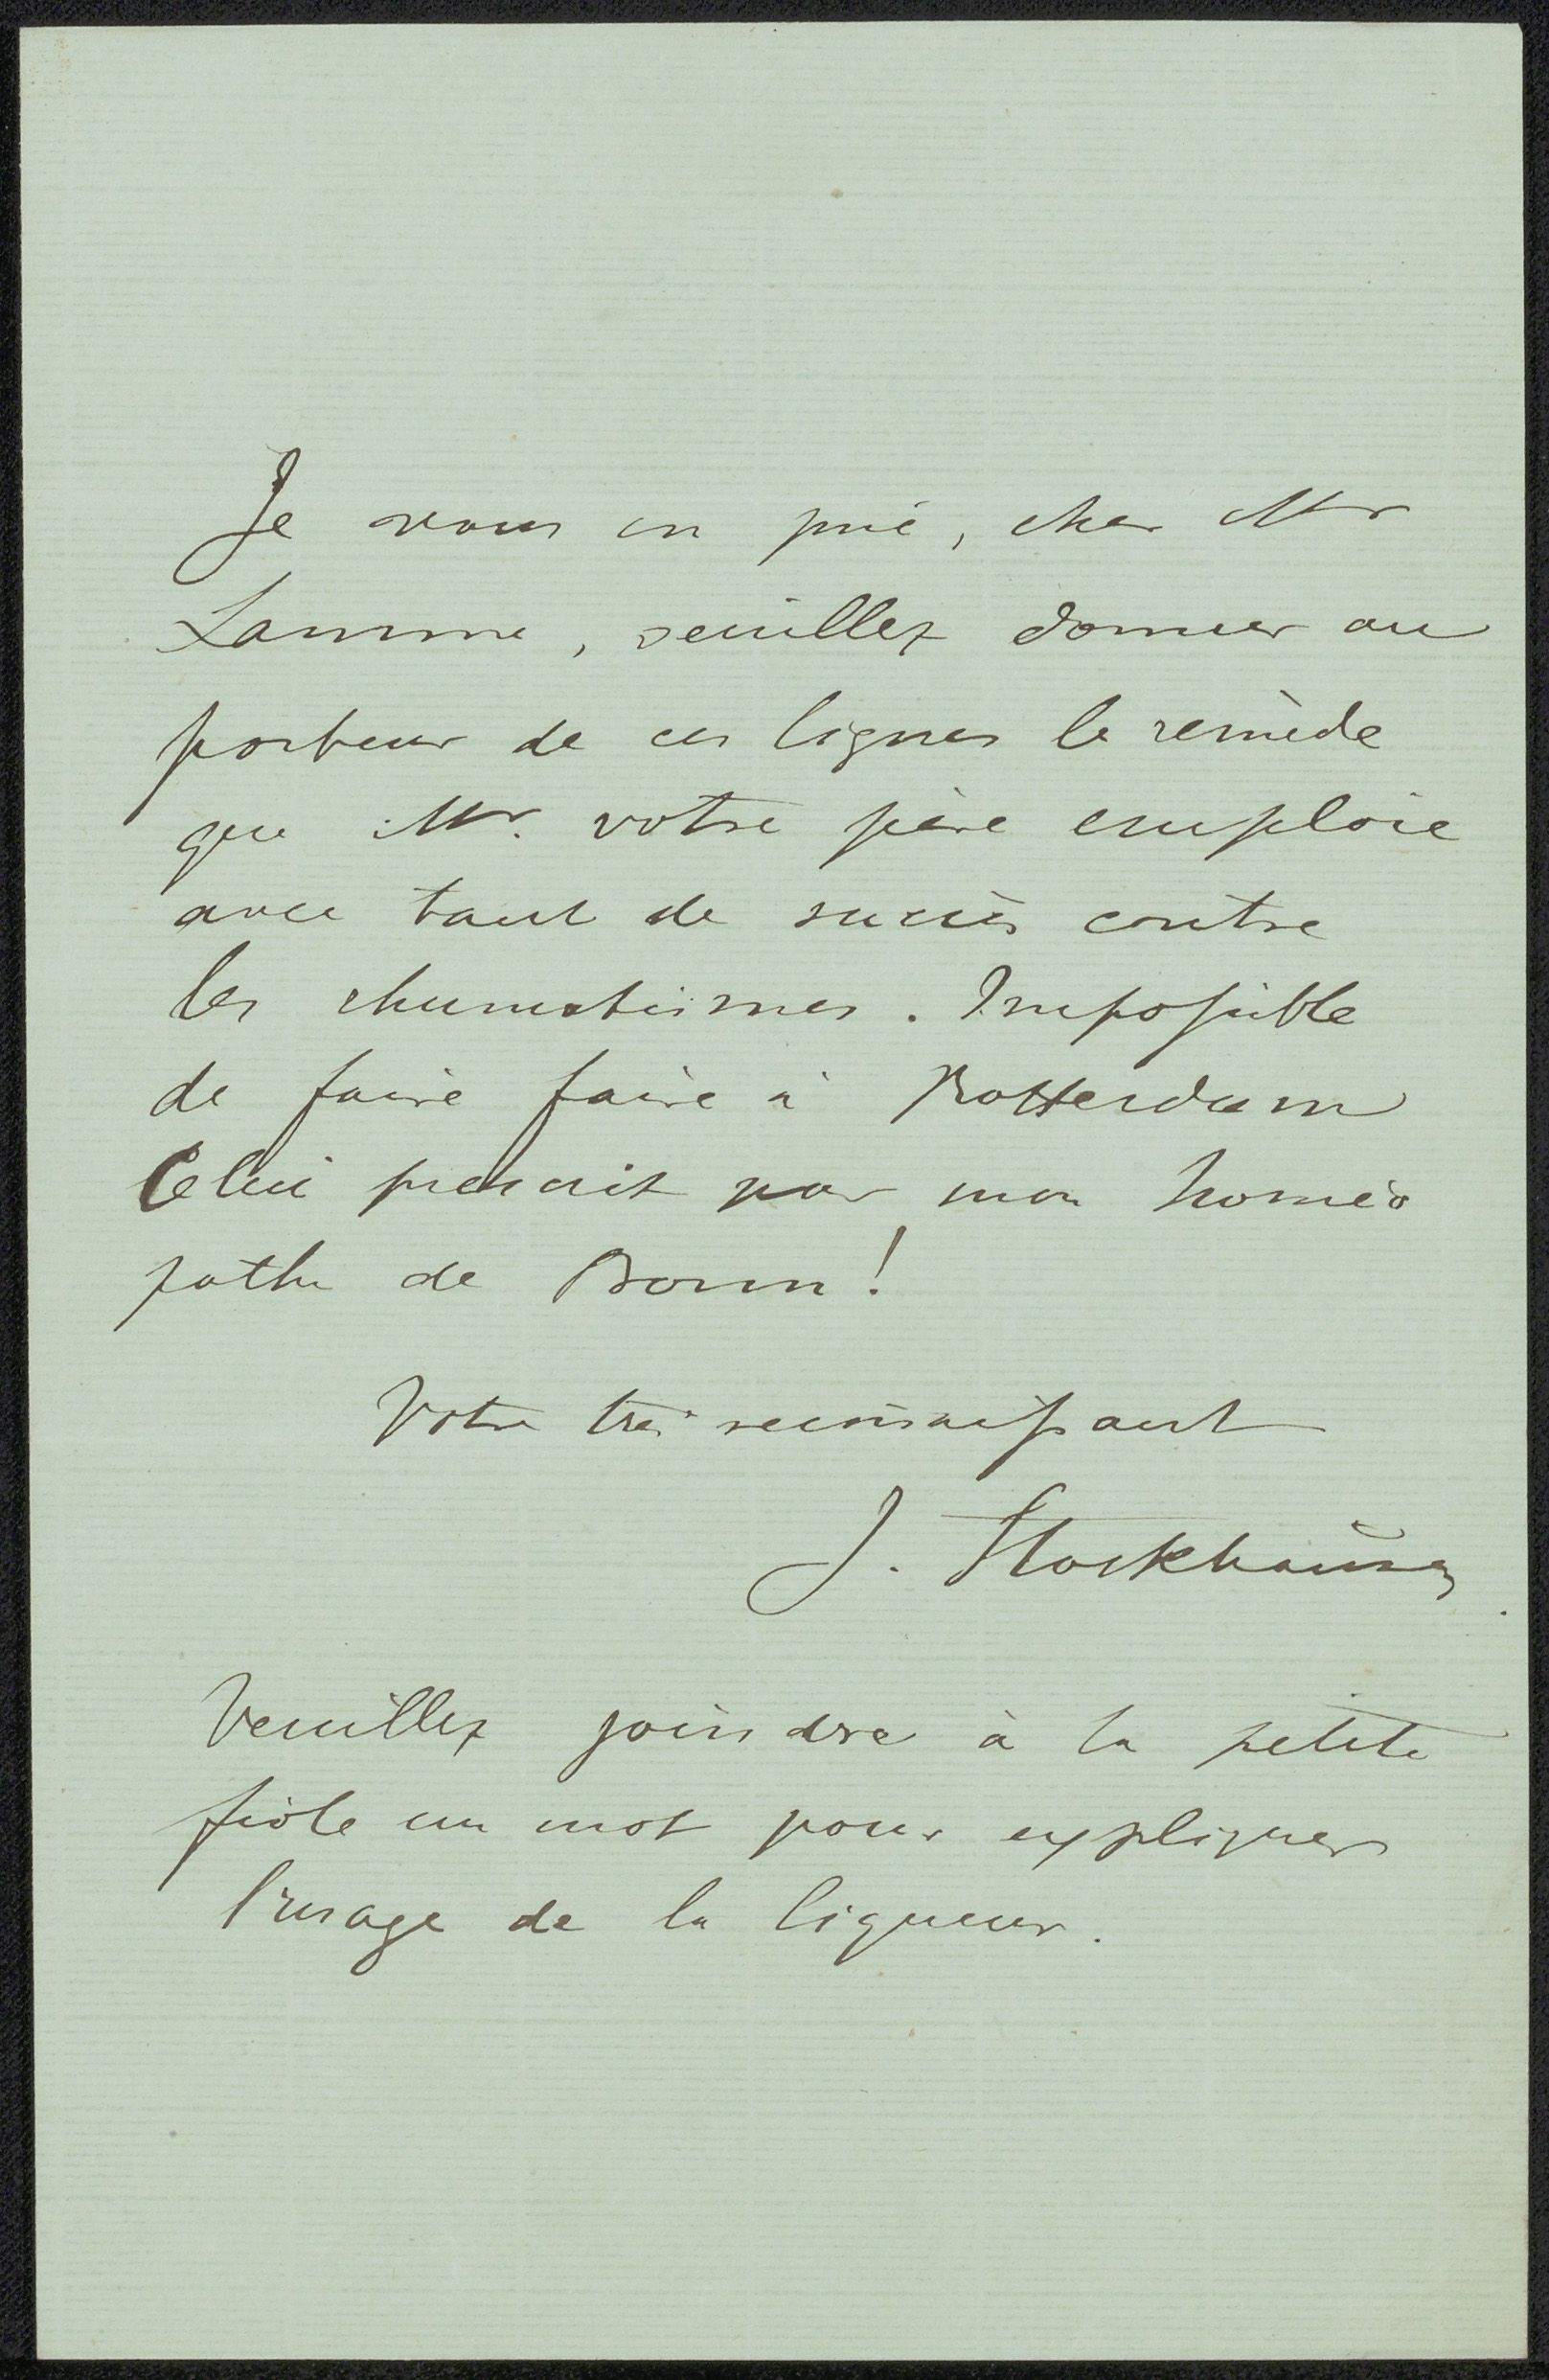 Je vous en prie, cher Mr
Lamme, veuillez donner au
porteur de ces lignes le remède
que Mr. votre père emploie
avec tant de succès contre
les rhumatismes. Impossible
de faire faire à Rotterdam
Celui prescrit par mon homéo
pathe de Bonn!
Votre très reconnaissant
J. Stockhausen
Veuillez joindre à la petite
fiole un mot pour expliquer
l'usage de la liqueur.